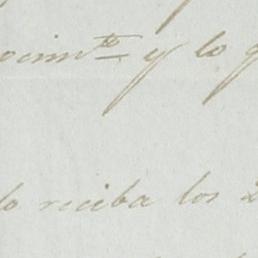 ocimto y lo
lo reciba los 2